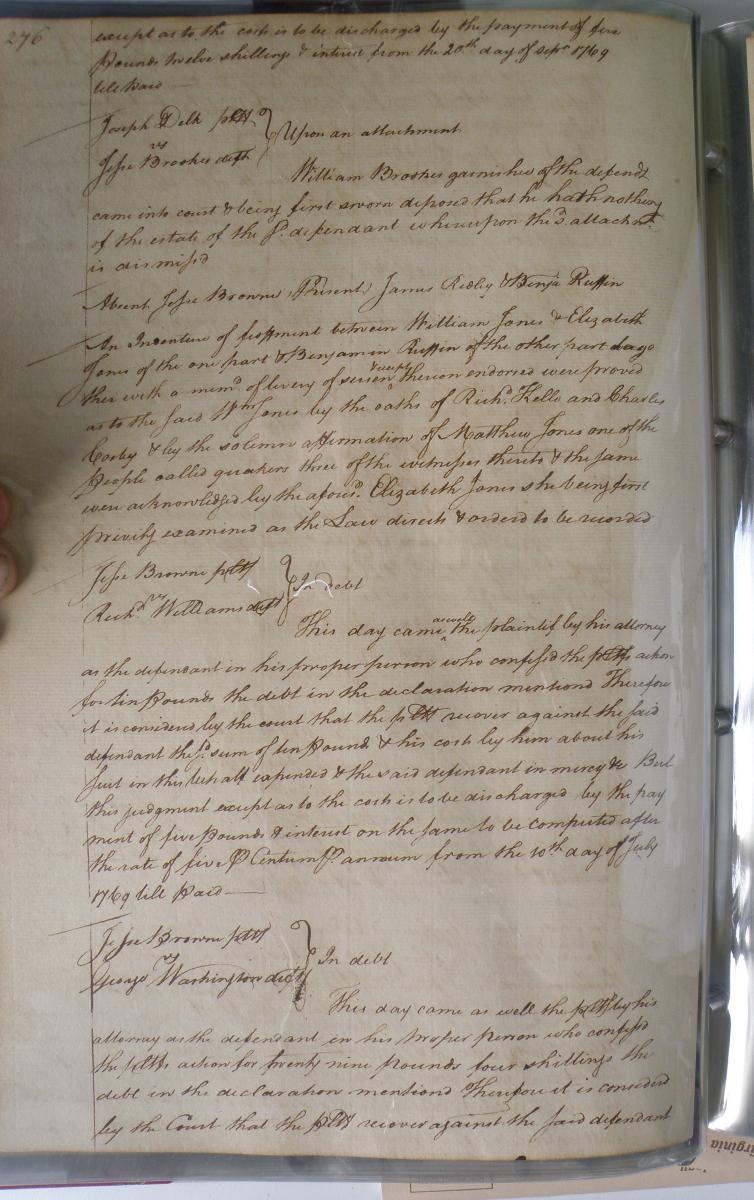 276
except as to the cost is to be discharged by the payment of five
Pounds twelve shillings & interest from the 20th day of Sepr 1769
till paid
Joseph Delk pltf
vs
Upon an attachment
Jesse Brookes deft
William Brookes garnishee of the defendt
came into court & being first sworn deposed that he hath nothing
of the estate of the sd. defendant whereupon the sd attachmt.
is dismissd
Absent Jesse Browne, Present James Ridley & Benja Ruffin
An Indenture of feoffment between William Jones & Elizabeth
Jones of the one part & Benjamin Ruffin of the other part toge
ther with a memd of livery of seisen & receipt thereon endorsed were proved
as to the said Wm Jones by the oaths of Richd. Kello and Charles
Cosby & by the solemn affirmation of Matthew Jones one of the
People called quakers three of the witnesses thereto & the same
were acknowledged by the aforesd. Elizabeth Jones she being first
privily examined as the Law directs & orderd to be recorded
Jesse Browne pltf
vs
In debt
Richd. Williams deft
This day came aswell the plaintif by his attorney
as the defendant in his proper person who confessd the pltfs action
for tin Pounds the debt in the declaration mentiond Therefore
it is considerd by the court that the pltf recover against the said
defendant the sd. sum of ten Pounds & his cost by him about his
suit in this behalf expended & the said defendant in mercy &c But
this judgment except as to the costs is to be discharged by the pay
ment of five Pounds & interest on the same to be computed after
the rate of five P Centum P. annum from the 10th day of July
1769 till paid
Jesse Browne pltf
vs
In debt
George Washington deft
This day came as well the pltf by his
attorney as the defendant in his proper person who confessd
the pltfs action for twenty nine pounds four shillings the
debt in the declaration mentiond Therefore it is considerd
by the Court that the pltf recover against the said defendant